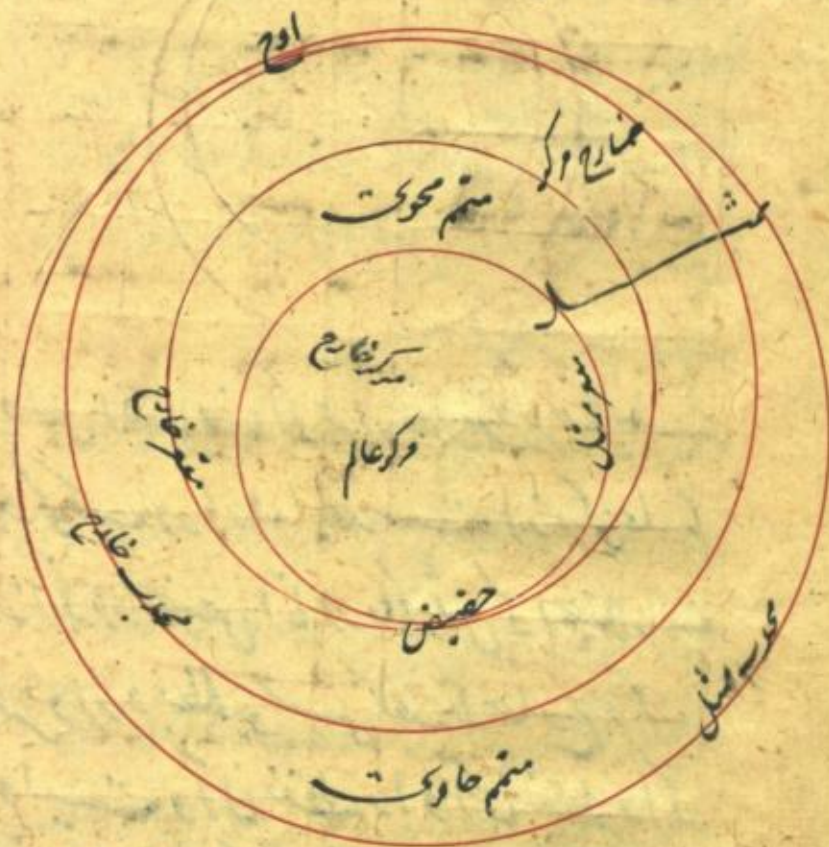 اوج
خارج مرکز
ممثل
متمم محوی
مرکز خارج
مرکز عالم
مقعر ممثل
مقعر خارج
محدب خارج
حضیض
محدب ممثل
متمم حاوی